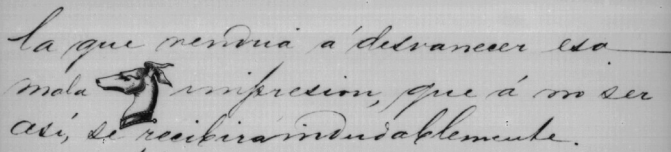 la que vendria á desvanecer esa
mala impresion, que á no ser
asi, se recibirá indudablemente.